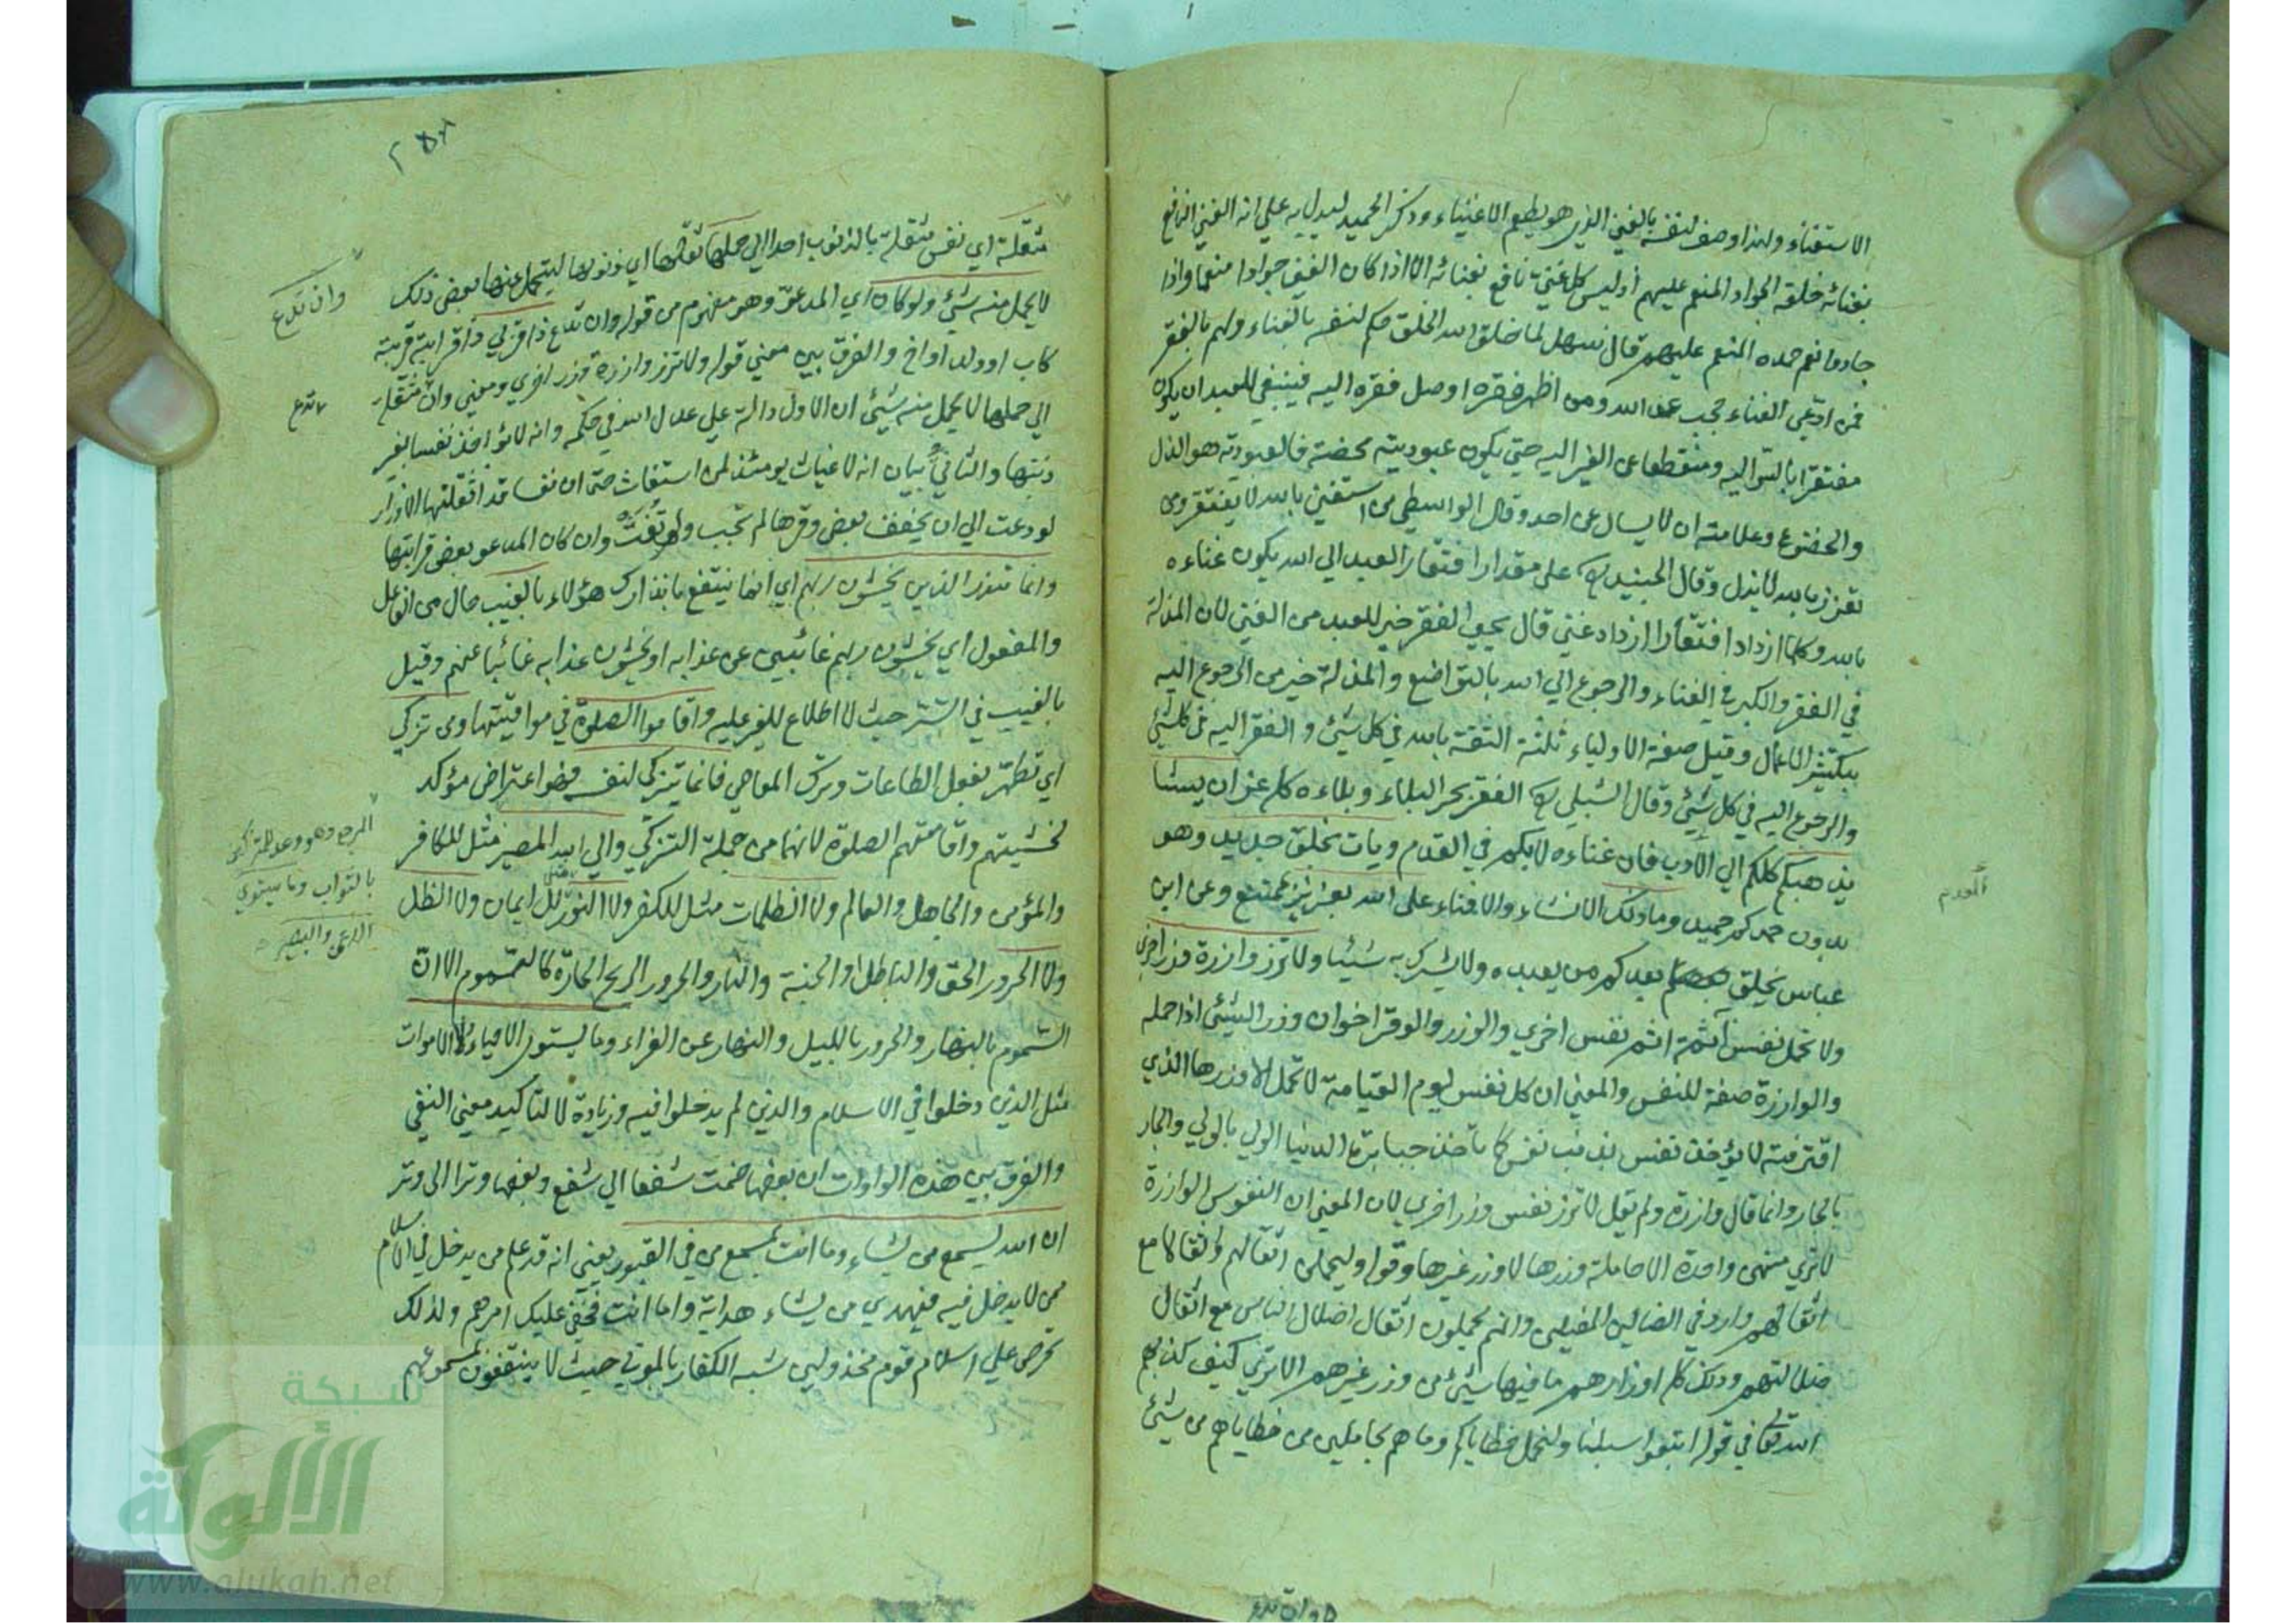 الاستغناء ولهذا وصف لنفسه بالغني الذي هو يطعم الاغنياء وذكر الحميد ليدل به علي انه الغني النافع
بغنائه خلقه الجواد المنعم عليهم اذ ليس كل غني نافع بغنائه الا اذا كان الغني جوادا منعما واذا
جاد وانعم حمده المنعم عليهم قال سهل لما خلق الله الخلق حكم لنفسه بالغناء ولهم بالفقر
فمن ادّعي الغناء حجب عن الله ومن اظهر فقره اوصل فقره اليه فينبغي للعبد ان يكون
مفتقرا بالسر اليه ومنقطعا عن الغير اليه حتي يكون عبوديته محضة فالعبودية هو الذل
والخضوع وعلامته ان لا يسال عن احد وقال الواسطي من استغني بالله لا يفتقر ومن
تعزز بالله لا يذل وقال الجنيد على مقدار افتقار العبد الي الله يكون غناءه
بالله وكلما ازداد افتقارا ازداد غني قال يحيي الفقر خير للعبد من الغني لان المذلة
في الفقر والكبر في الغناء والرجوع الي الله بالتواضع والمذلة خير من الرجوع اليه
بتكثير الاعمال وقيل صفة الاولياء ثلثة الثقة بالله في كل شيئ والفقر اليه في كل شيئ
والرجوع اليه في كل شيئ وقال الشبلي الفقر يجر البلاء وبلاءه كله عز ان يشا
يذهبكم كلكم الي فان غناءه لا بكم في القدم ويات بخلق جديد وهو
بدون حمدكم حميد وما ذلك الانشاء والافناء على الله بعزيز بممتنع وعن ابن
عباس يخلق بعدكم من يعبده ولا يشرك به شيئا ولا تزر وازرة وزر اخري
ولا تحمل نفس آثمة اثم نفس اخري والوزر والوقر اخوان وزر الشيئ اذا حمله
والوازرة صفة للنفس والمعني ان كل نفس يوم القيامة لا تحمل الا وزرها الذي
اقترفته لا يؤخذ نفس بذنب نفس كما تاخذ جبابرة الدنيا الولي بالولي والجار
بالجار وانما قال وازرة ولم يقل لا تزر نفس وزر اخري لان المعني ان النفوس الوازرة
لا تري منهن واحدة الا حاملة وزرها لا وزر غيرها وقوله وليحملن اثقالهم واثقالا مع
اثقالهم وارد في الضالين المضلين وانهم يحملون اثقال اضلال الناس مع اثقال
ضلالتهم وذلك كله اوزارهم ما فيها شيئ من وزر غيرهم الا تري كيف كذبهم
الله تعالى في قوله اتبعوا سبيلنا ولنحمل خطاياكم وما هم بحاملين من خطاياهم من شيئ
وان تدع
مثقلة اي نفس مثقلة بالذنوب احدا الي حملها ثقلها اي ذنوبها ليتحمل عنها بعض ذلك
لا يحمل منه شيئ ولو كان اي المدعوّ وهو مفهوم من قوله وان تدع ذا قربي ذا قرابة قريبة
كاب او ولد او اخ والفرق بين معني قوله ولا تزر وازرة وزر اخري ومعني وان تدع مثقلة
الي حملها لا يحمل منه شيئ ان الاول دالة علي عدل الله في حكمه وانه لا يؤاخذ نفسا بغير
ذنبها والثاني بيان انه لا غياث يومئذ لمن استغاث حتى ان نفسا قد اثقلتها الاوزار
لو دعت الي ان يخفف بعض وقرها لم تجب ولم تغث وان كان المدعو بعض قرابتها
وانما تنذر الذين يخشون ربهم اي انما ينتفع بانذارك هؤلاء بالغيب حال من الفاعل
والمفعول اي يخشون ربهم غائبين عن عذابه او يخشون عذابه غائبا عنهم وقيل
بالغيب في السّر حيث لا اطلاع للغير عليه واقاموا الصلوة في مواقيتها ومن تزكي
اي تطهر بفعل الطاعات وترك المعاصي فانما يتزكى لنفسه وهو اعتراض مؤكد
لخشيتهم واقامتهم الصلوة لانهما من جملة التزكي والي الله المصير مثل للكافر
المرجع وهو وعد للمتزكي
بالثواب وما يستوي
الاعمى والبصير
والمؤمن والجاهل والعالم ولا الظلمات مثل للكفر ولا النور مثل للايمان ولا الظل
ولا الحرور الحق والباطل او الجنة والنار والحرور الريح الحارّة كالسموم الا ان
السّموم بالنهار والحرور بالليل والنهار عن الفراء وما يستوي الاحياء ولا الاموات
مثل الذين دخلوا في الاسلام والذين لم يدخلوا فيه وزيادة لا لتاكيد معني النفي
والفرق بين هذه الواوات ان بعضها ضمت شفعا الي شفع وبعضها وترا الى وتر
ان الله يسمع من يشاء وما انت بمسمع من في القبور يعني انه قد علم من يدخل في الاسلام
ممن لا يدخل فيه فيهدي من يشاء هدايته واما انت فخفي عليك امرهم ولذلك
تحرص علي اسلام قوم مخذولين شبه الكفار بالموتي حيث لا ينتفعون بمسموعهم
وان تدع
شبكة
الألوكة
www.alukah.net